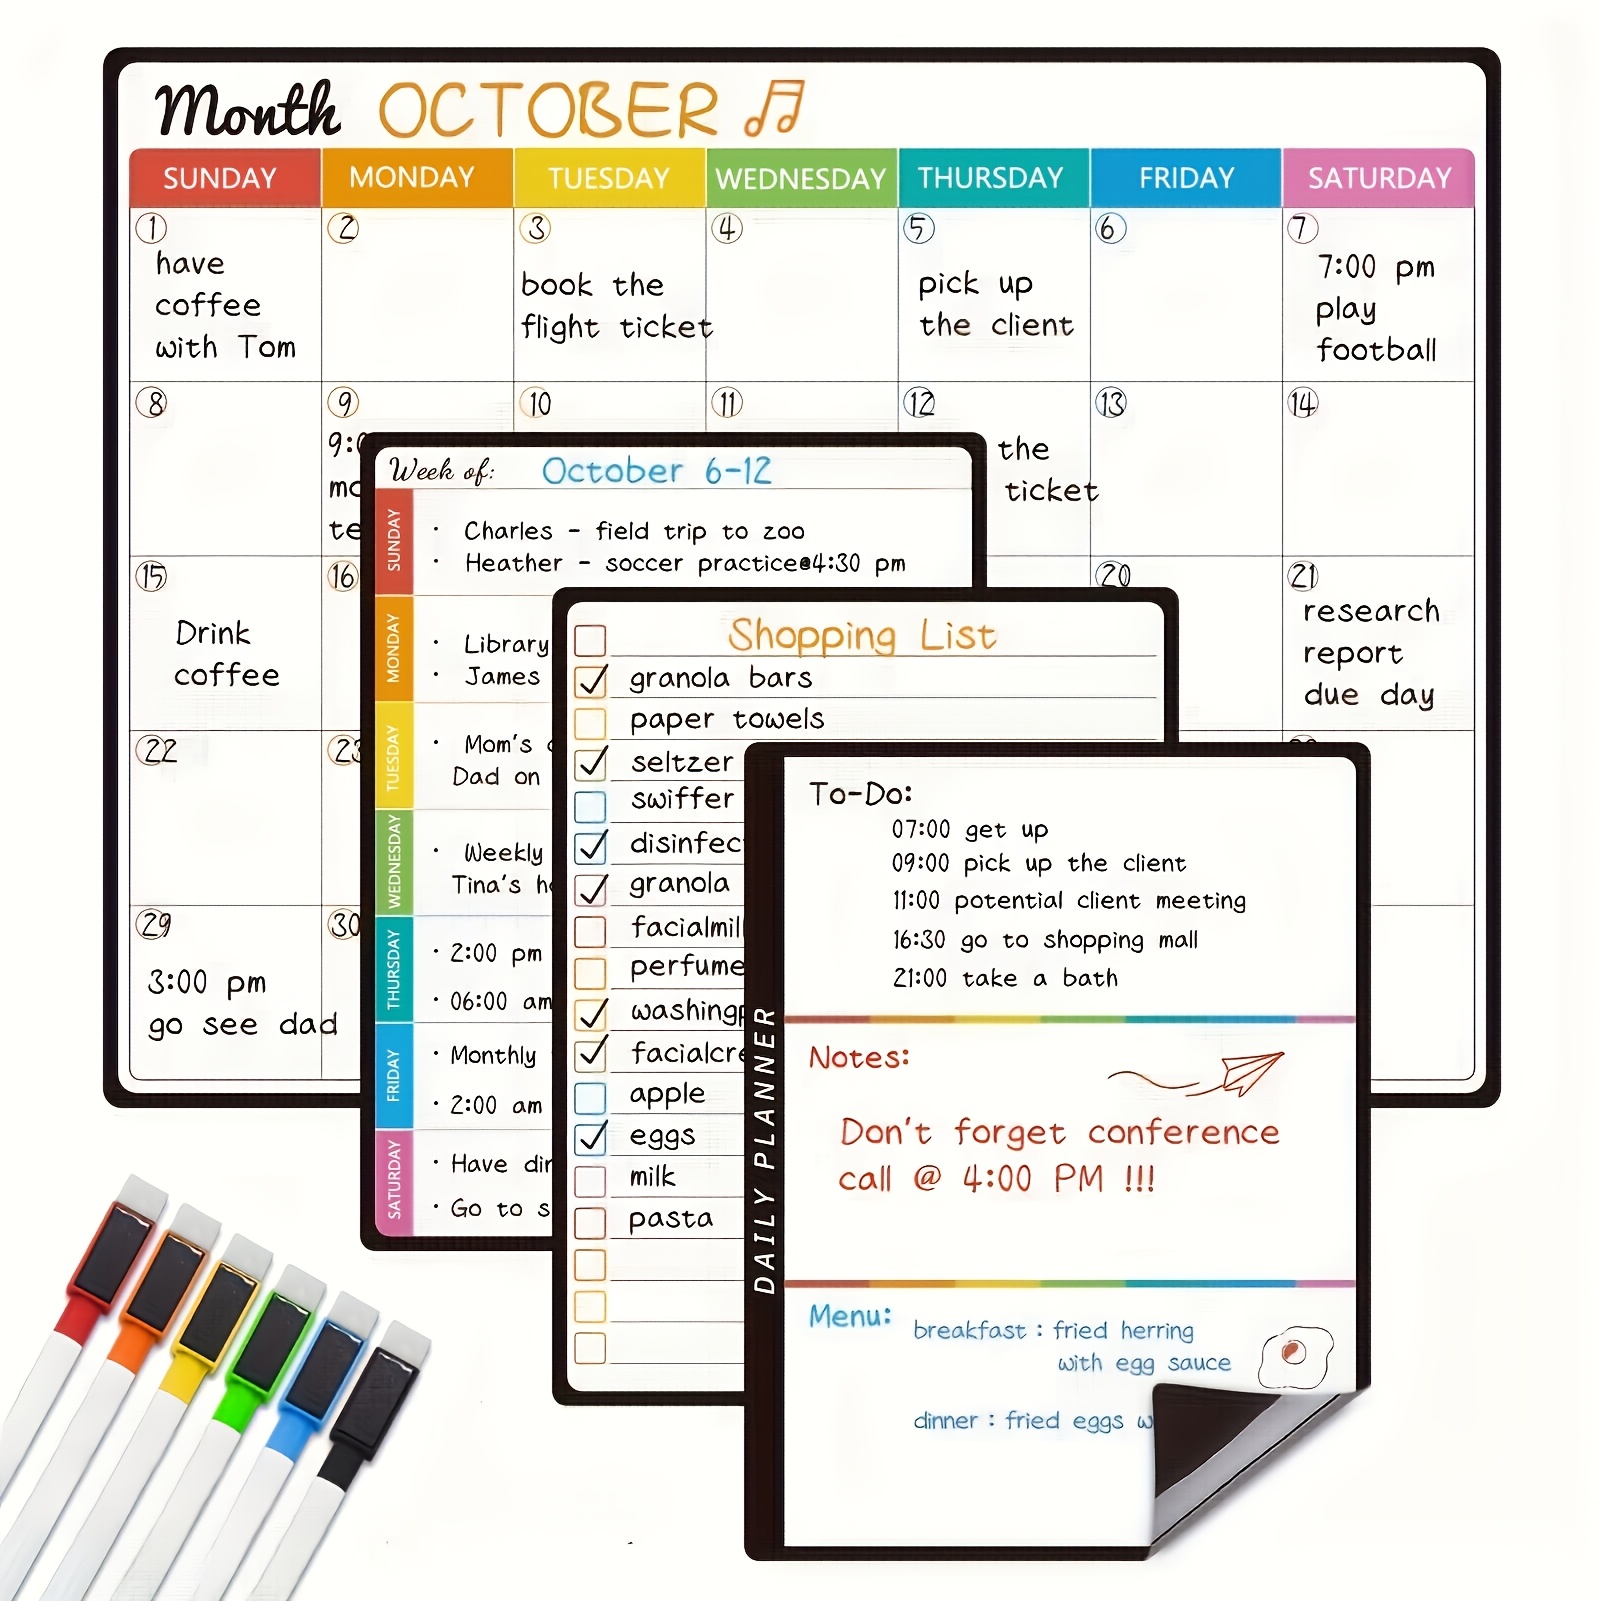 Month OCTOBER
SUNDAY MONDAY TUESDAY WEDNESDAY THURSDAY FRIDAY SATURDAY
1 2 3 4 5 6 7
have
coffee
with Tom
book the
flight ticket
pick up
the client
7:00 pm
play
football
8 9 10 11 12 13 14
the
ticket
15 16 20 21
Drink
coffee
research
report
due day
22 23
29 30
3:00 pm
go see dad
Week of: October 6-12
SUNDAY
· Charles - field trip to zoo
· Heather - soccer practice@4:30 pm
MONDAY
· Library
· James
TUESDAY
· Mom's
Dad on
WEDNESDAY
· Weekly
Tina's
THURSDAY
· 2:00 pm
· 06:00 am
FRIDAY
· Monthly
· 2:00 am
SATURDAY
· Have
· Go to
Shopping List
granola bars
paper towels
seltzer
swiffer
granola
perfume
apple
eggs
milk
pasta
DAILY PLANNER
To-Do:
07:00 get up
09:00 pick up the client
11:00 potential client meeting
16:30 go to shopping mall
21:00 take a bath
Notes:
Don't forget conference
call @ 4:00 PM !!!
Menu:
breakfast : fried herring
with egg sauce
dinner : fried eggs